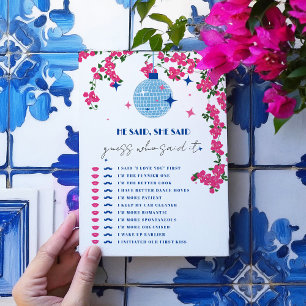 HE SAID, SHE SAID
guess who said it
I SAID "I LOVE YOU" FIRST
I'M THE FUNNIER ONE
I'M THE BETTER COOK
I HAVE BETTER DANCE MOVES
I'M MORE PATIENT
I KEEP MY CAR CLEANER
I'M MORE ROMANTIC
I'M MORE SPONTANEOUS
I'M MORE ORGANISED
I WAKE UP EARLIER
I INITIATED OUR FIRST KISS